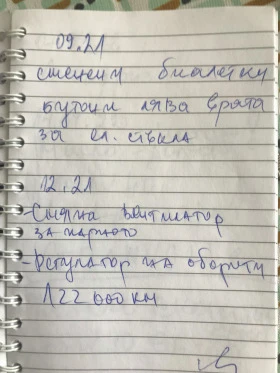 09.21
сменени биалетки
бутони лява врата
за ел. стъкла
12.21
-Смяна вентилатор
за парното
-Регулатор на обороти
122 000 км